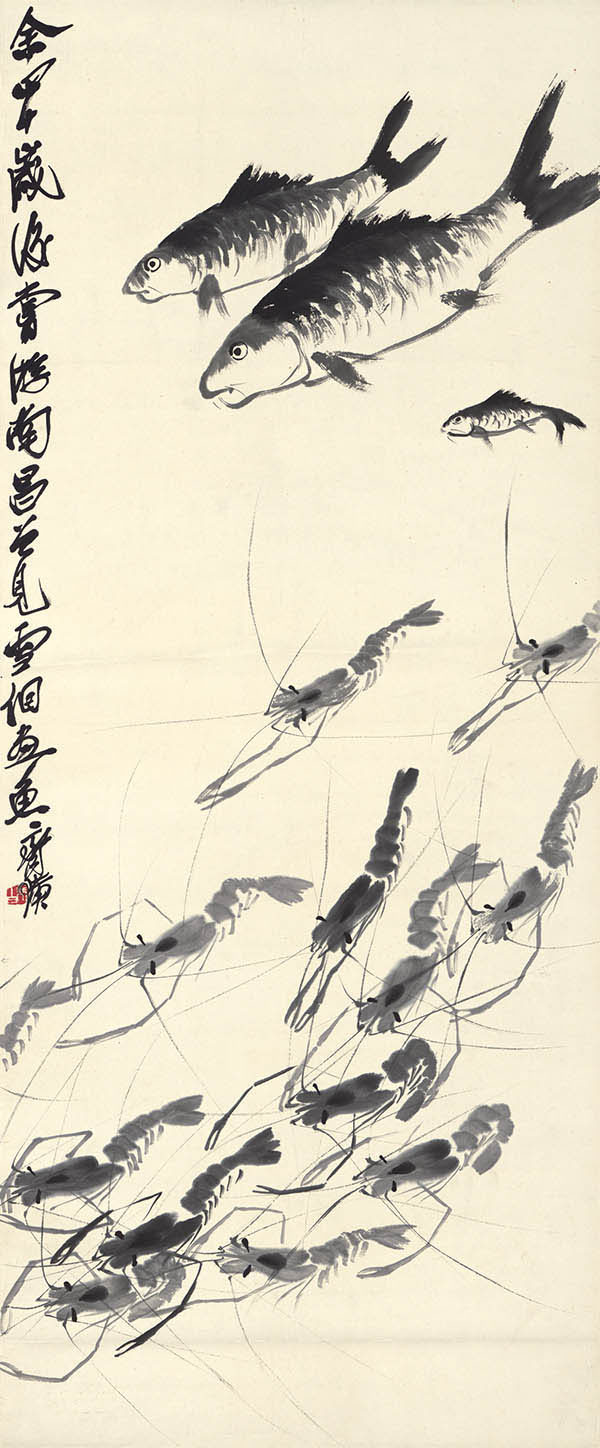 余四十歲後嘗游南昌只見雪個畫魚齊璜